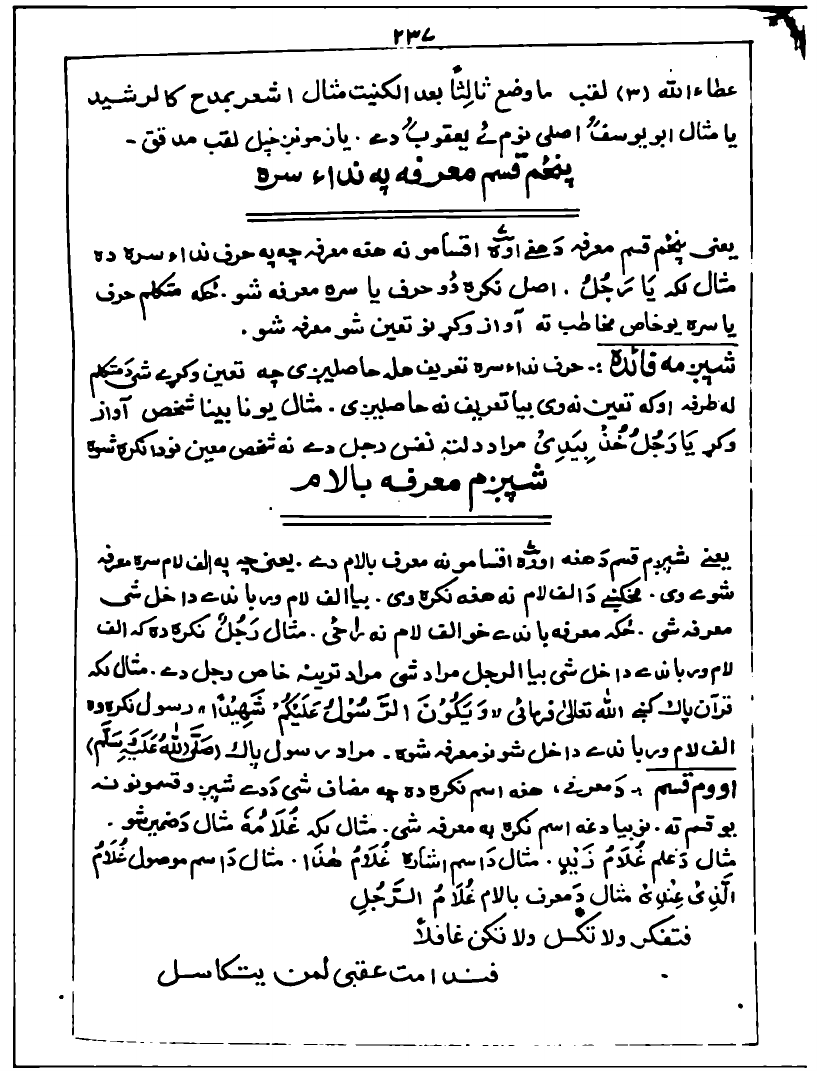 ۲۳۷
عطاء الله (۳) لقب ما وضع ثالثاً بعد الکنیت مثال اشعر بمدح کالرشید
یا مثال ابو یوسفؒ اصلی نوم ئے یعقوبؒ دے . یا زمونږ خپل لقب مدقق -
پنځم قسم معرفه په نداء سره
یعنی پنځم قسم معرفہ دَهغے اووهٔ اقسامو نه هغه معرفہ چه په حرف نداء سره ده
مثال لکه یَا رَجُلُ . اصل نکرہ دُو حرف یا سره معرفه شو . ځکه متکلم حرف
یا سره یو خاص مخاطب ته آواز وکړ نو تعین شو معرفہ شو .
شپږمه فائدہ :- حرف نداء سره تعریف هله حاصلیږی چه تعین وکړے شی دَ متکلم
له طرفہ اوکه تعین نه وی بیا تعریف نه حاصلیږی . مثال یو نابینا شخص آواز
وکړ یَا رَجُلُ خُذْ بِیَدِیْ مراد دلته نفس رجل دے نه شخص معین نو دا نکره شوه
شپږم معرفه بالام
یعنے شپږم قسم دَهغه اووهٔ اقسامو نه معرف بالام دے . یعنی چه په الف لام سره معرفہ
شوے وی . مخکښے دَ الف لام نه هغه نکره وی . بیا الف لام ورباندے داخل شی
معرفہ شی . ځکه معرفه باندے خو الف لام نه راځی . مثال رَجُلٌ نکرہ ده که الف
لام ورباندے داخل شی بیا الرجل مراد شی مراد ترینه خاص رجل دے . مثال لکه
قرآن پاک کښے الله تعالیٰ فرمائی " وَیَکُوْنَ الرَّسُوْلُ عَلَیْکُمْ شَهِیْدًا " رسول نکره وه
الف لام ورباندے داخل شو نو معرفہ شوہ . مراد رسول پاک (صَلَّی اللهُ عَلَیْهِ وَسَلَّمَ)
اووم قسم :- دَ معرفے ، هغه اسم نکره ده چه مضاف شی دَدے شپږو قسمونو نه
یو قسم ته . نو بیا دغه اسم نکره په معرفه شی . مثال لکه غُلَامُهٗ مثال دَ ضمیر شو .
مثال دَ علم غُلَامُ زَیْدٍ . مثال دَ اسم اشارہ غُلَامُ هٰذَا . مثال دَ اسم موصول غُلَامُ
الَّذِیْ عِنْدِیْ مثال دَ معرف بالام غُلَامُ الرَّجُلِ
فتفکر ولا تکسل ولا تکن غافلاً
فندامت عقبی لمن یتکاسل